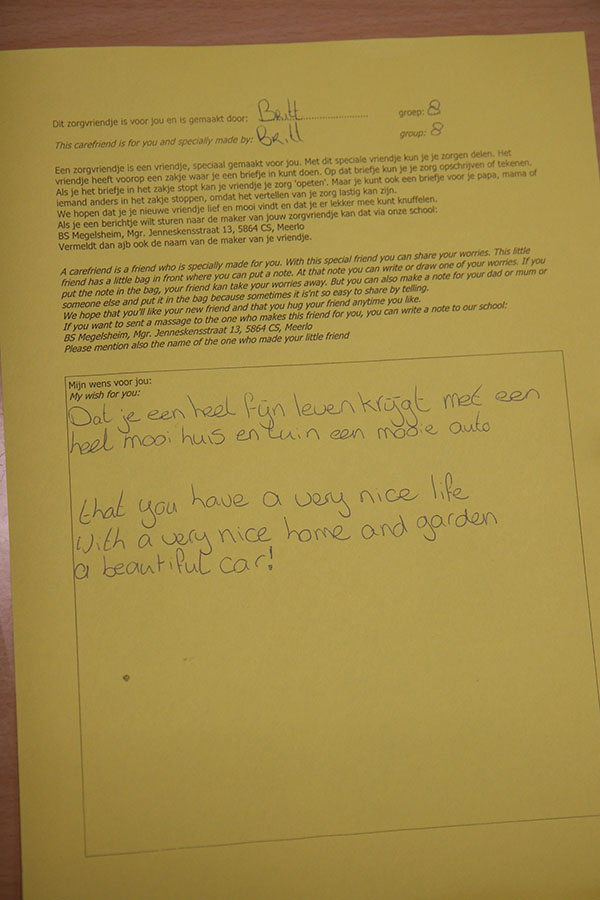 Dit zorgvriendje is voor jou en is gemaakt door: Britt groep: 8
This carefriend is for you and specially made by: Britt group: 8
Een zorgvriendje is een vriendje, speciaal gemaakt voor jou. Met dit speciale vriendje kun je je zorgen delen. Het
vriendje heeft voorop een zakje waar je een briefje in kunt doen. Op dat briefje kun je je zorg opschrijven of tekenen.
Als je het briefje in het zakje stopt kan je vriendje je zorg 'opeten'. Maar je kunt ook een briefje voor je papa, mama of
iemand anders in het zakje stoppen, omdat het vertellen van je zorg lastig kan zijn.
We hopen dat je je nieuwe vriendje lief en mooi vindt en dat je er lekker mee kunt knuffelen.
Als je een berichtje wilt sturen naar de maker van jouw zorgvriendje kan dat via onze school:
BS Megelsheim, Mgr. Jenneskensstraat 13, 5864 CS, Meerlo
Vermeldt dan ajb ook de naam van de maker van je vriendje.
A carefriend is a friend who is specially made for you. With this special friend you can share your worries. This little
friend has a little bag in front where you can put a note. At that note you can write or draw one of your worries. If you
put the note in the bag, your friend kan take your worries away. But you can also make a note for your dad or mum or
someone else and put it in the bag because sometimes it is'nt so easy to share by telling.
We hope that you'll like your new friend and that you hug your friend anytime you like.
If you want to sent a massage to the one who makes this friend for you, you can write a note to our school:
BS Megelsheim, Mgr. Jenneskensstraat 13, 5864 CS, Meerlo
Please mention also the name of the one who made your little friend
Mijn wens voor jou:
My wish for you:
Dat je een heel fijn leven krijgt met een
heel mooi huis en tuin een mooie auto
that you have a very nice life
with a very nice home and garden
a beautiful car!